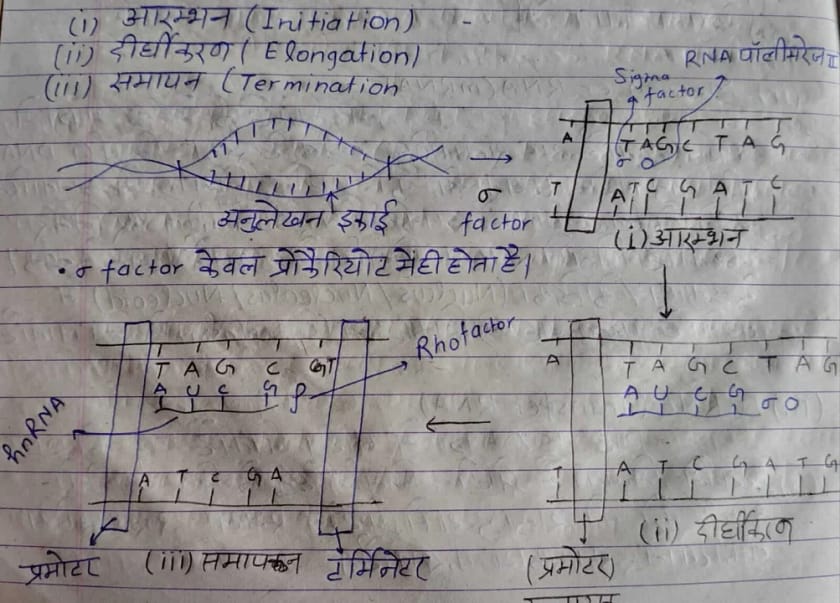 (i) आरम्भन (Initiation) -
(ii) दीर्घीकरण (Elongation)
(iii) समापन (Termination
RNA पॉलीमरेज II
Sigma factor
A T A G C T A G
σ O
T A T C G A T C
(i) आरम्भन
अनुलेखन इकाई
σ factor
• σ factor केवल प्रोकैरियोट में ही होता है।
Rho factor
T A G C GT
A U C G ρ
hnRNA
A T C G A
प्रमोटर
(iii) समापन
टर्मिनेटर
A T A G C T A G
A U C G σ O
T A T C G A T G
(ii) दीर्घीकरण
(प्रमोटर)